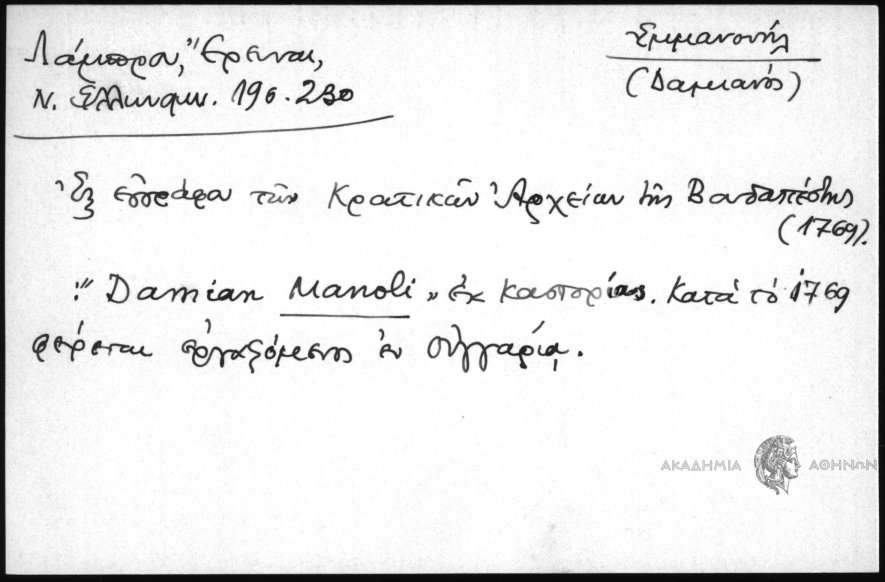 Λάμπρου, Ἔρευναι,
Ν. Ἑλληνομν. 19ε. 230
Ἐμμανουήλ
(Δαμιανός)
Ἐξ ἐγγράφου τῶν Κρατικῶν Ἀρχείων τῆς Βουδαπέστης
(1769).
:" Damian Manoli " ἐκ Καστορίας. Κατὰ τὸ 1769
φέρεται ἐργαζόμενος ἐν Οὑγγαρίᾳ.
ΑΚΑΔΗΜΙΑ ΑΘΗΝΩΝ